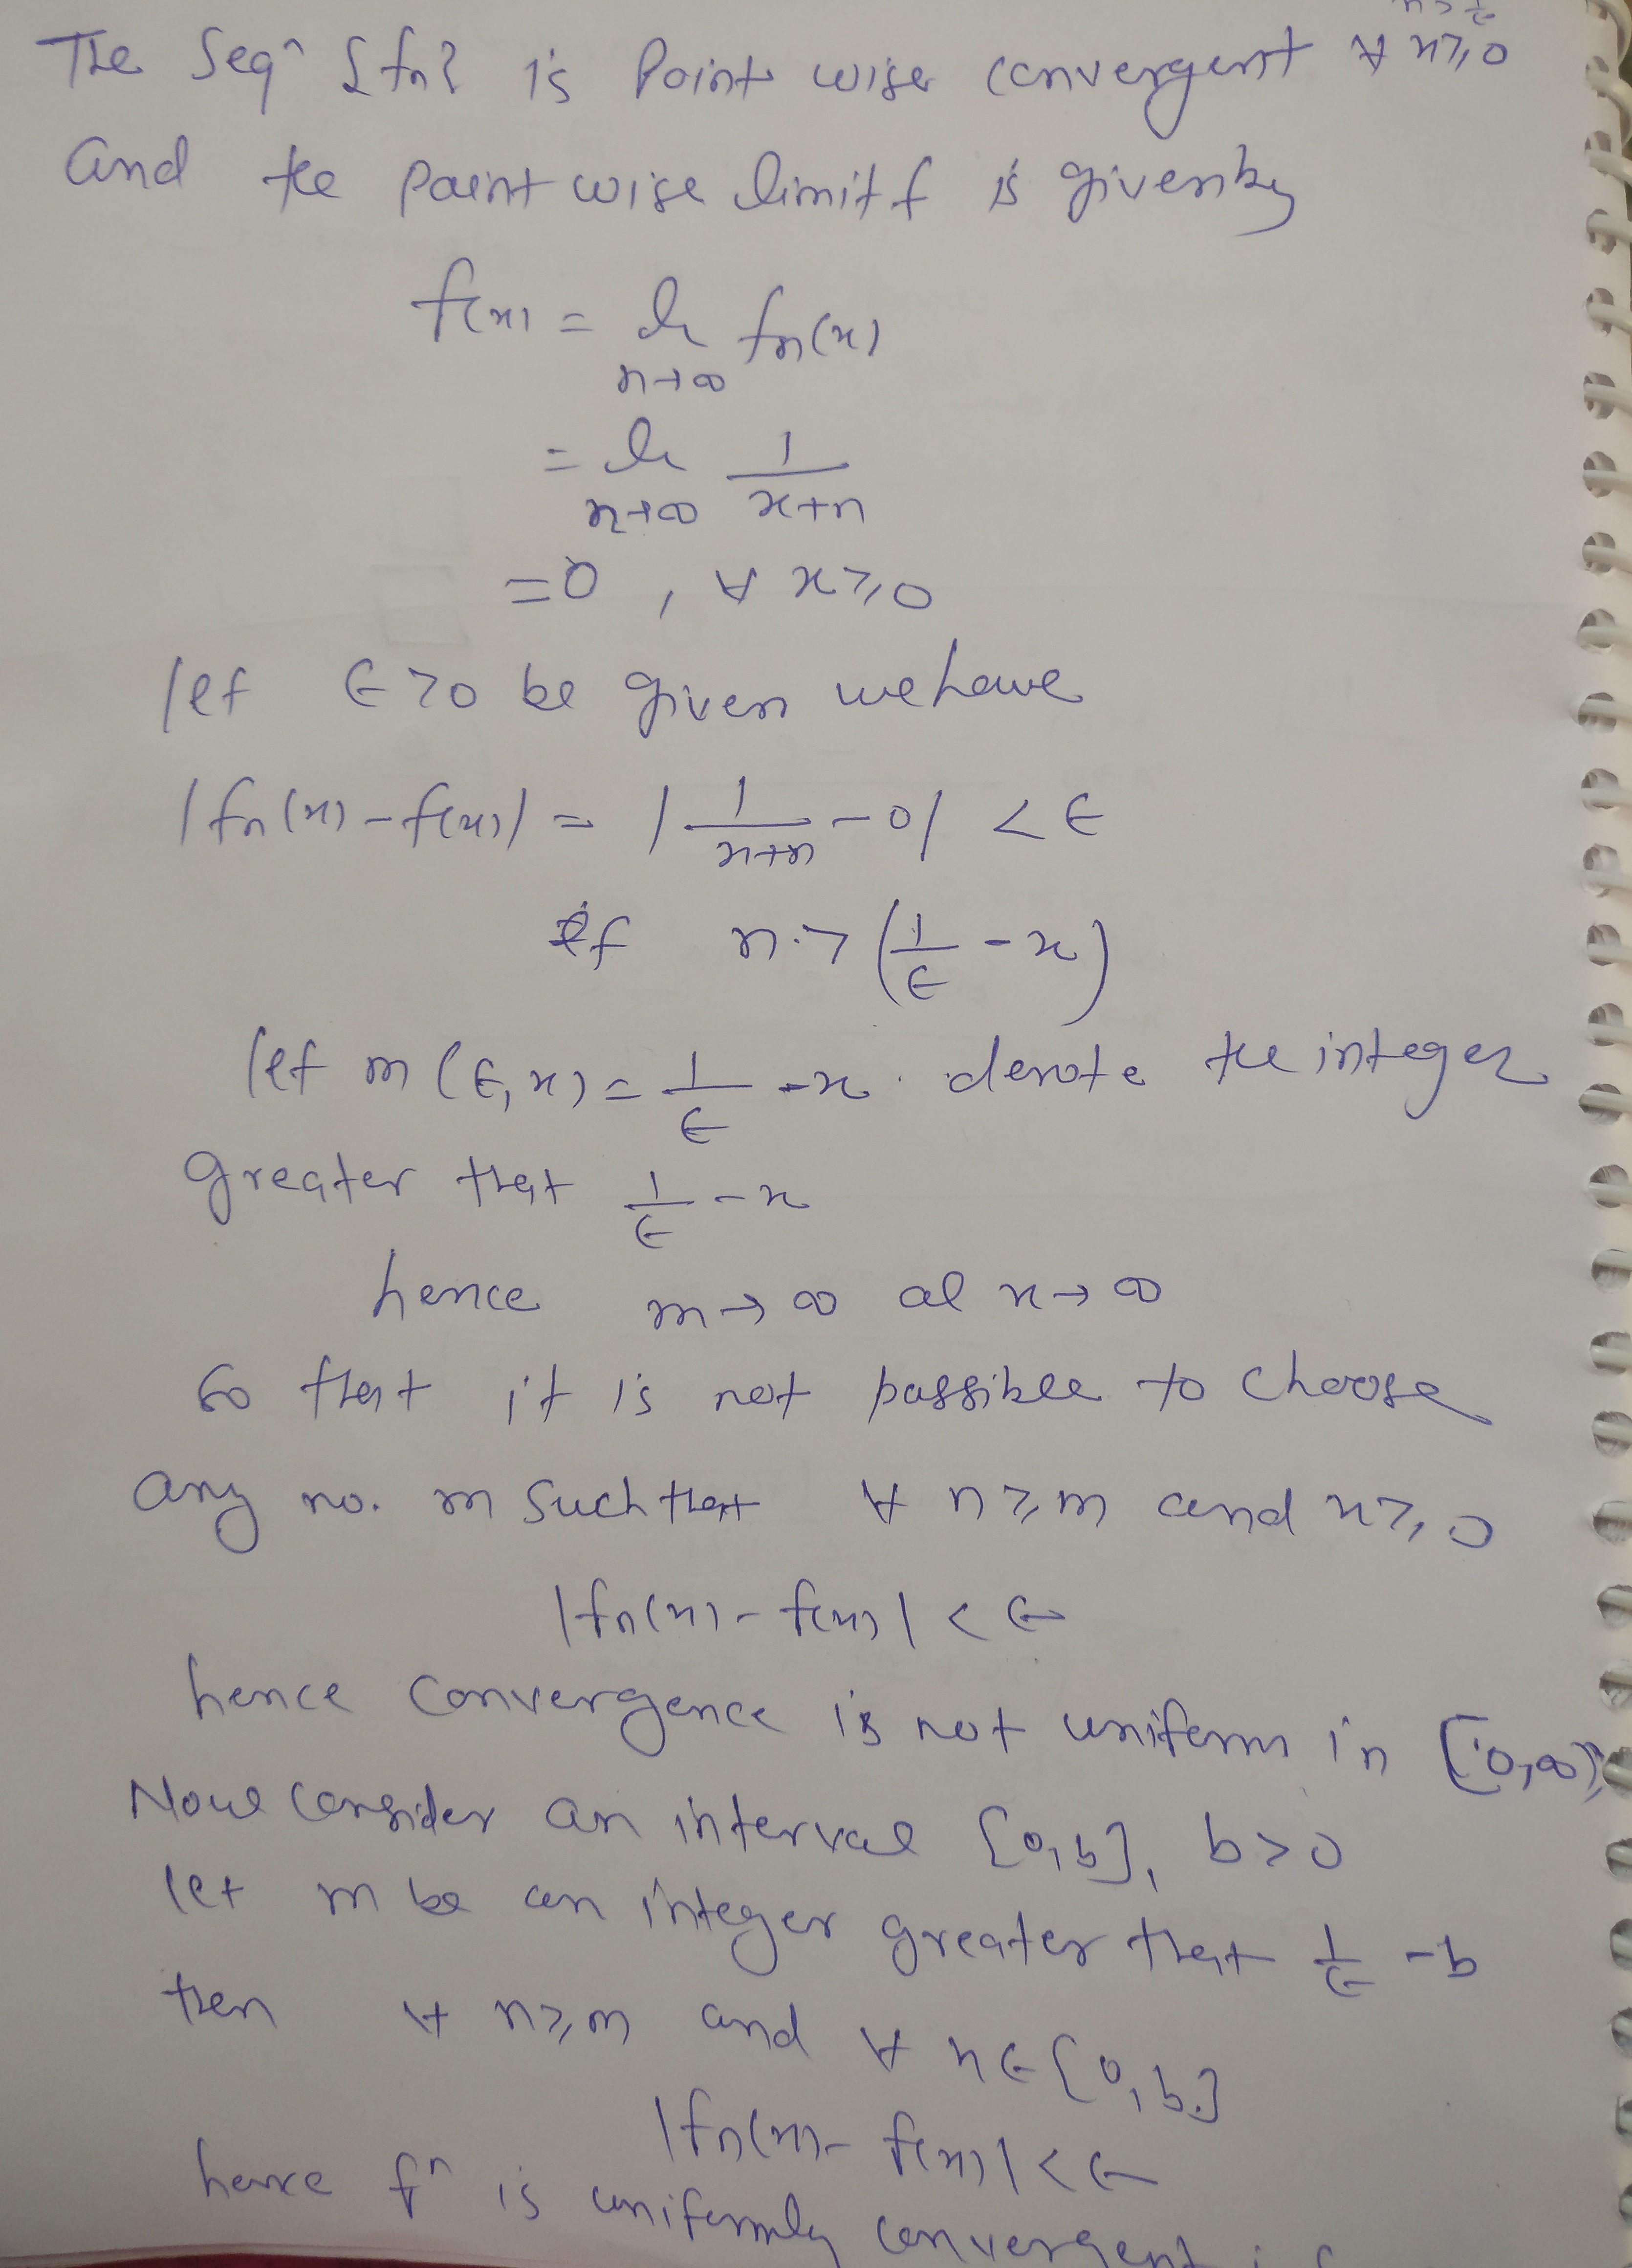 n > 1/ε
The Seqⁿ {fn} is Point wise convergent ∀ x ≥ 0
and the Pointwise limit f is given by
f(x) = lim n→∞ fn(x)
= lim n→∞ 1/(x+n)
= 0 , ∀ x ≥ 0
let ε > 0 be given we have
|fn(x) - f(x)| = |1/(x+n) - 0| < ε
if n > (1/ε - x)
let m(ε, x) = 1/ε - x . denote the integer
greater that 1/ε - x
hence m → ∞ as x → ∞
so that it is not possible to choose
any no. m such that ∀ n ≥ m and x ≥ 0
|fn(x) - f(x)| < ε
hence convergence is not uniform in [0, ∞)
Now consider an interval [0, b], b > 0
let m be an integer greater that 1/ε - b
then ∀ n ≥ m and ∀ x ∈ [0, b]
|fn(x) - f(x)| < ε
hence fⁿ is uniformly convergent